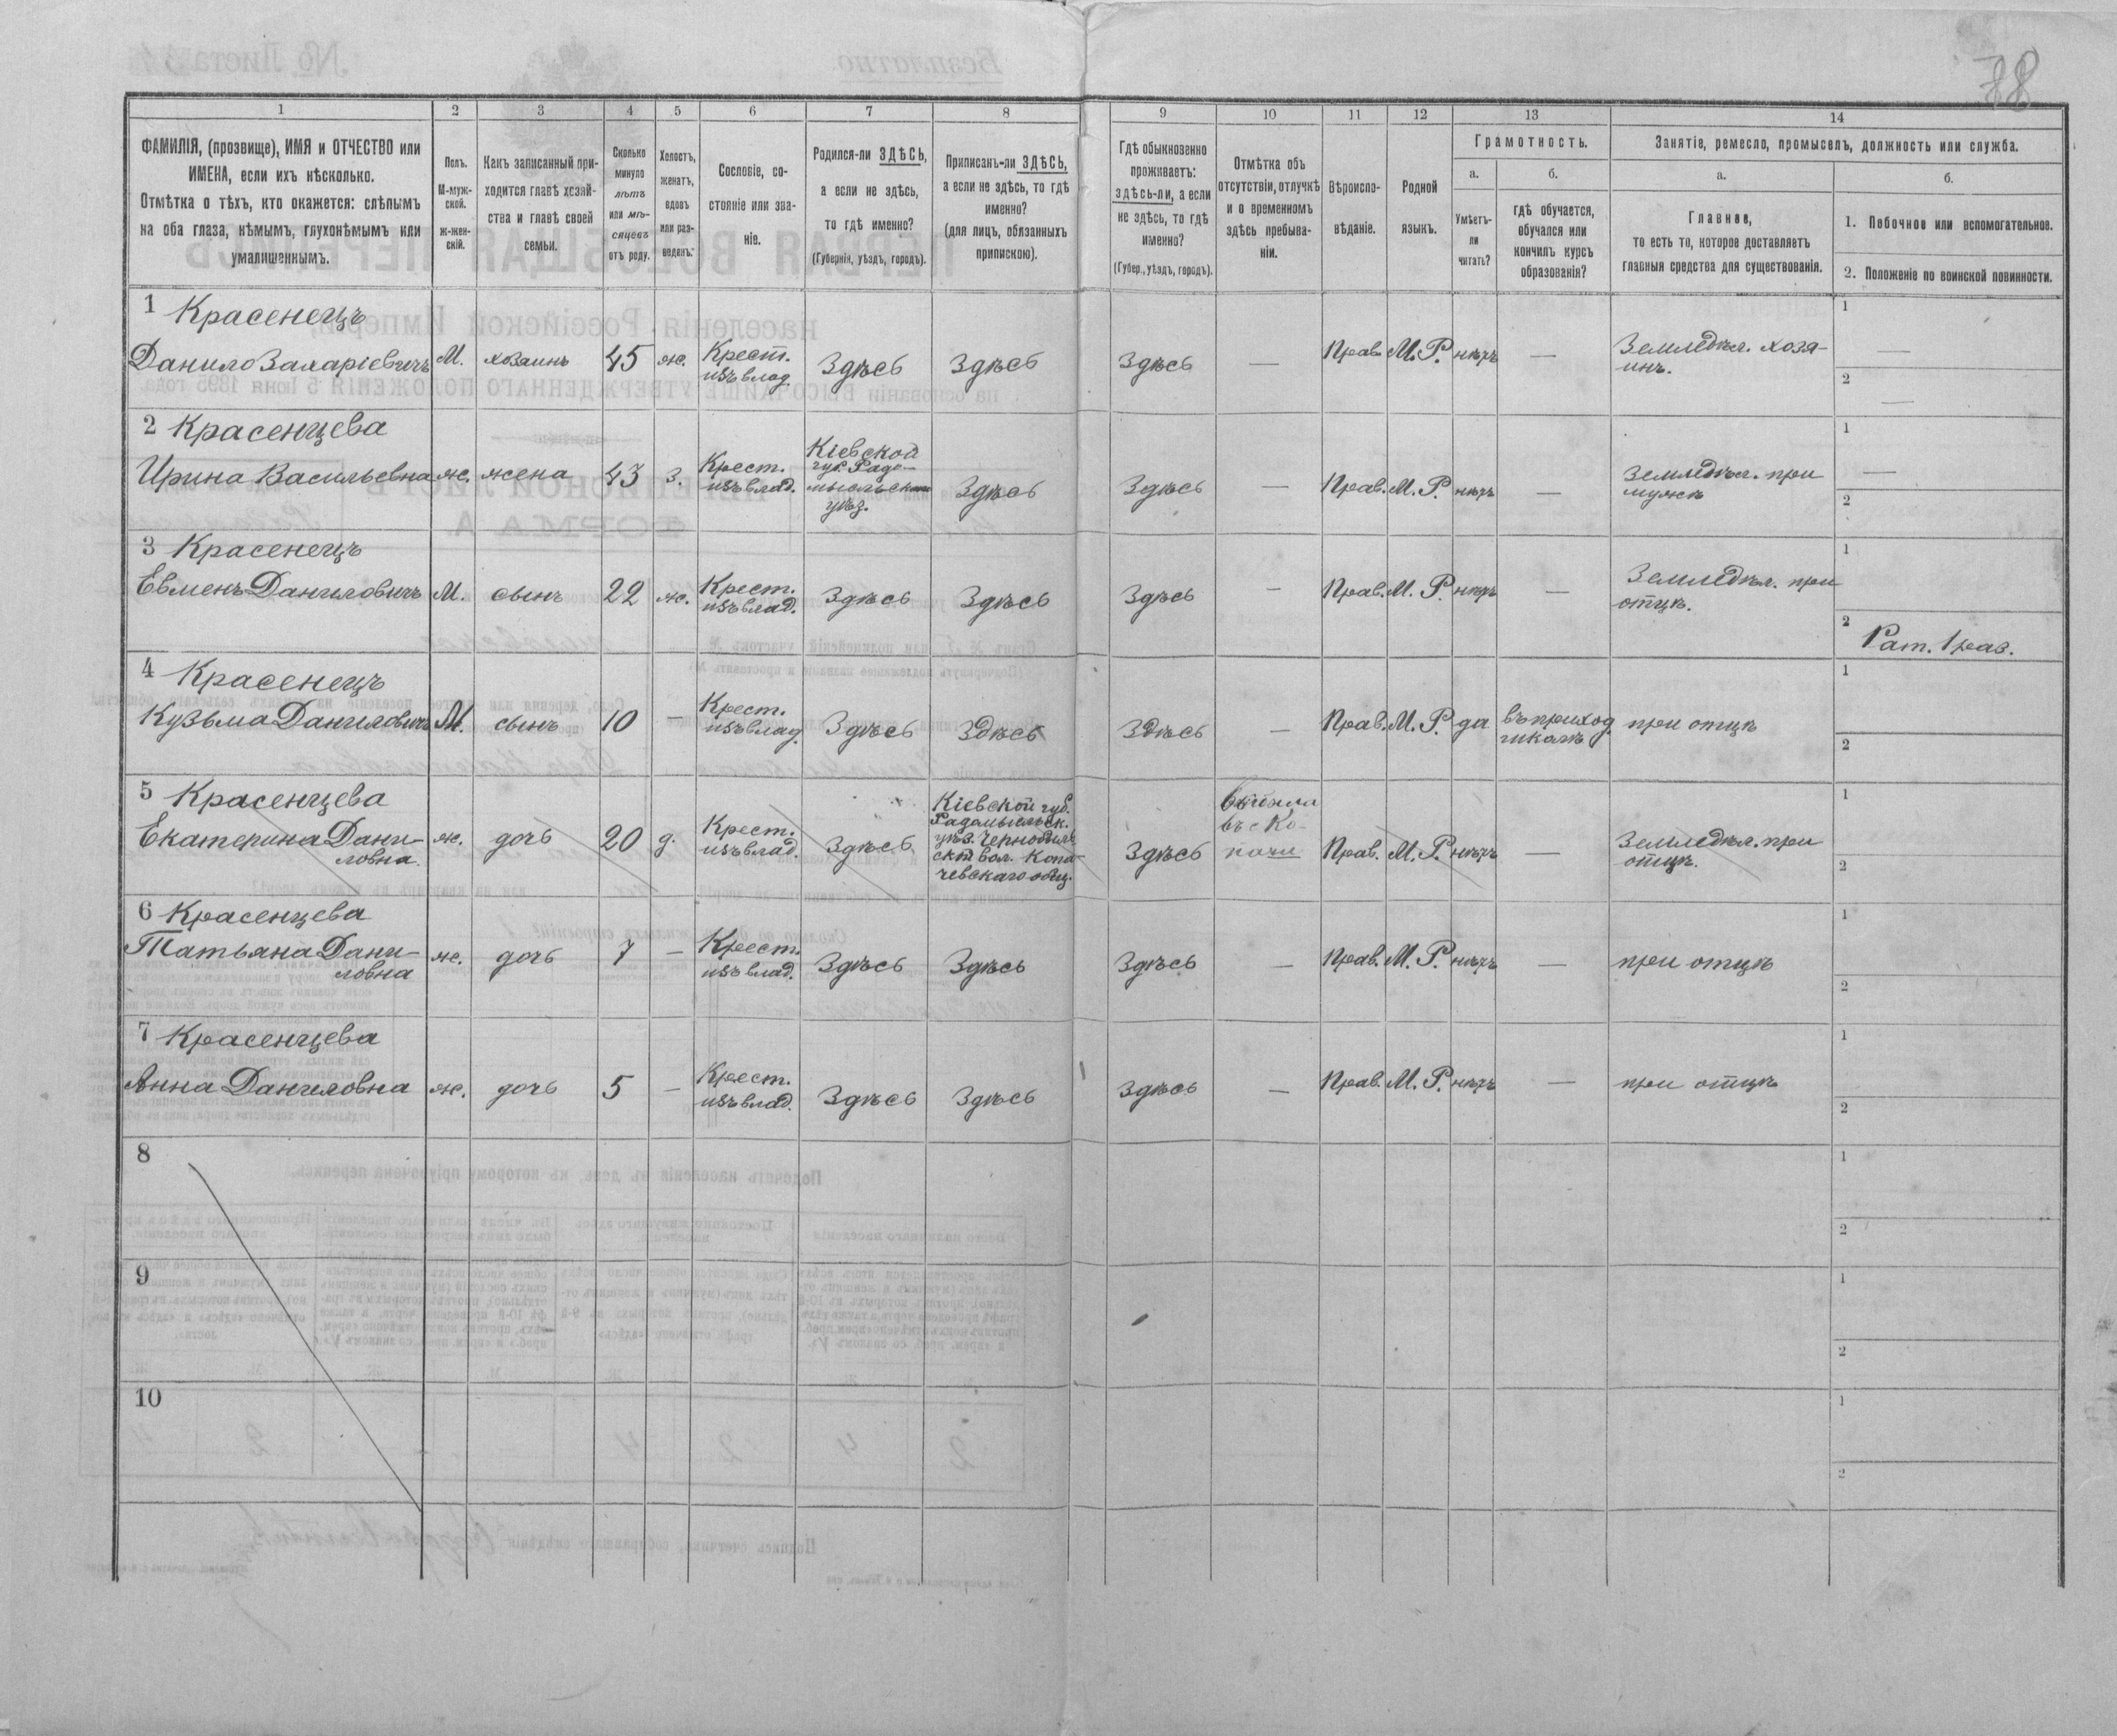 78
1 2 3 4 5 6 7 8 9 10 11 12 13 14
ФАМИЛІЯ, (прозвище), ИМЯ и ОТЧЕСТВО или
ИМЕНА, если ихъ нѣсколько.
Отмѣтка о тѣхъ, кто окажется: слѣпымъ
на оба глаза, нѣмымъ, глухонѣмымъ или
умалишеннымъ.
Полъ.
М-муж-
ской.
Ж-жен-
скій.
Какъ записанный при-
ходится главѣ хозяй-
ства и главѣ своей
семьи.
Сколько
минуло
лѣтъ
или мѣ-
сяцевъ
отъ роду.
Холостъ,
женатъ,
вдовъ
или раз-
веденъ.
Сословіе, со-
стояніе или зва-
ніе.
Родился-ли ЗДѢСЬ,
а если не здѣсь,
то гдѣ именно?
(Губернія, уѣздъ, городъ).
Приписанъ-ли ЗДѢСЬ,
а если не здѣсь, то гдѣ
именно?
(для лицъ, обязанныхъ
припискою).
Гдѣ обыкновенно
проживаетъ:
здѣсь-ли, а если
не здѣсь, то гдѣ
именно?
(Губер., уѣздъ, городъ).
Отмѣтка объ
отсутствіи, отлучкѣ
и о временномъ
здѣсь пребыва-
ніи.
Вѣроиспо-
вѣданіе.
Родной
языкъ.
Грамотность.
а.
Умѣетъ-
ли
читать?
б.
гдѣ обучается,
обучался или
кончилъ курсъ
образованія?
Занятіе, ремесло, промыселъ, должность или служба.
а.
Главное,
то есть то, которое доставляетъ
главныя средства для существованія.
б.
1. Побочное или вспомогательное.
2. Положеніе по воинской повинности.
1 Красенецъ
Данило Захаріевичъ М. хозаинъ 45 ж. Крест.
изъ влад. Здѣсь Здѣсь Здѣсь — Прав. М. Р. нѣтъ — Земледѣл. хозя-
инъ.
1 —
2 —
2 Красенцева
Ирина Васильевна ж. жена 43 з. Крест.
изъ влад. Кіевской
губ. Радо-
мысльскаго
уѣз. Здѣсь Здѣсь — Прав. М. Р. нѣтъ — Земледѣл. при
мужѣ
1 —
2
3 Красенецъ
Евменъ Даниловичъ М. сынъ 22 ж. Крест.
изъ влад. Здѣсь Здѣсь Здѣсь — Прав. М. Р. нѣтъ — Земледѣл. при
отцѣ.
1
2 Рат. 1 раз.
4 Красенецъ
Кузьма Даниловичъ М. сынъ 10 — Крест.
изъ влад. Здѣсь Здѣсь Здѣсь — Прав. М. Р. да въ приход.
школѣ при отцѣ
1
2
5 Красенцева
Екатерина Дани-
ловна. ж. дочь 20 д. Крест.
изъ влад. Здѣсь Кіевской губ.
Радомысльск.
уѣз. Чернобыль
ской вол. Копа-
чевскаго общ. Здѣсь
въ с Ко-
пачи Прав. М. Р. нѣтъ — Земледѣл. при
отцѣ.
1
2
6 Красенцева
Татьяна Дани-
ловна ж. дочь 7 — Крест.
изъ влад. Здѣсь Здѣсь Здѣсь — Прав. М. Р. нѣтъ — при отцѣ
1
2
7 Красенцева
Анна Даниловна ж. дочь 5 — Крест.
изъ влад. Здѣсь Здѣсь Здѣсь — Прав. М. Р. нѣтъ — при отцѣ
1
2
8
1
2
9
1
2
10
1
2